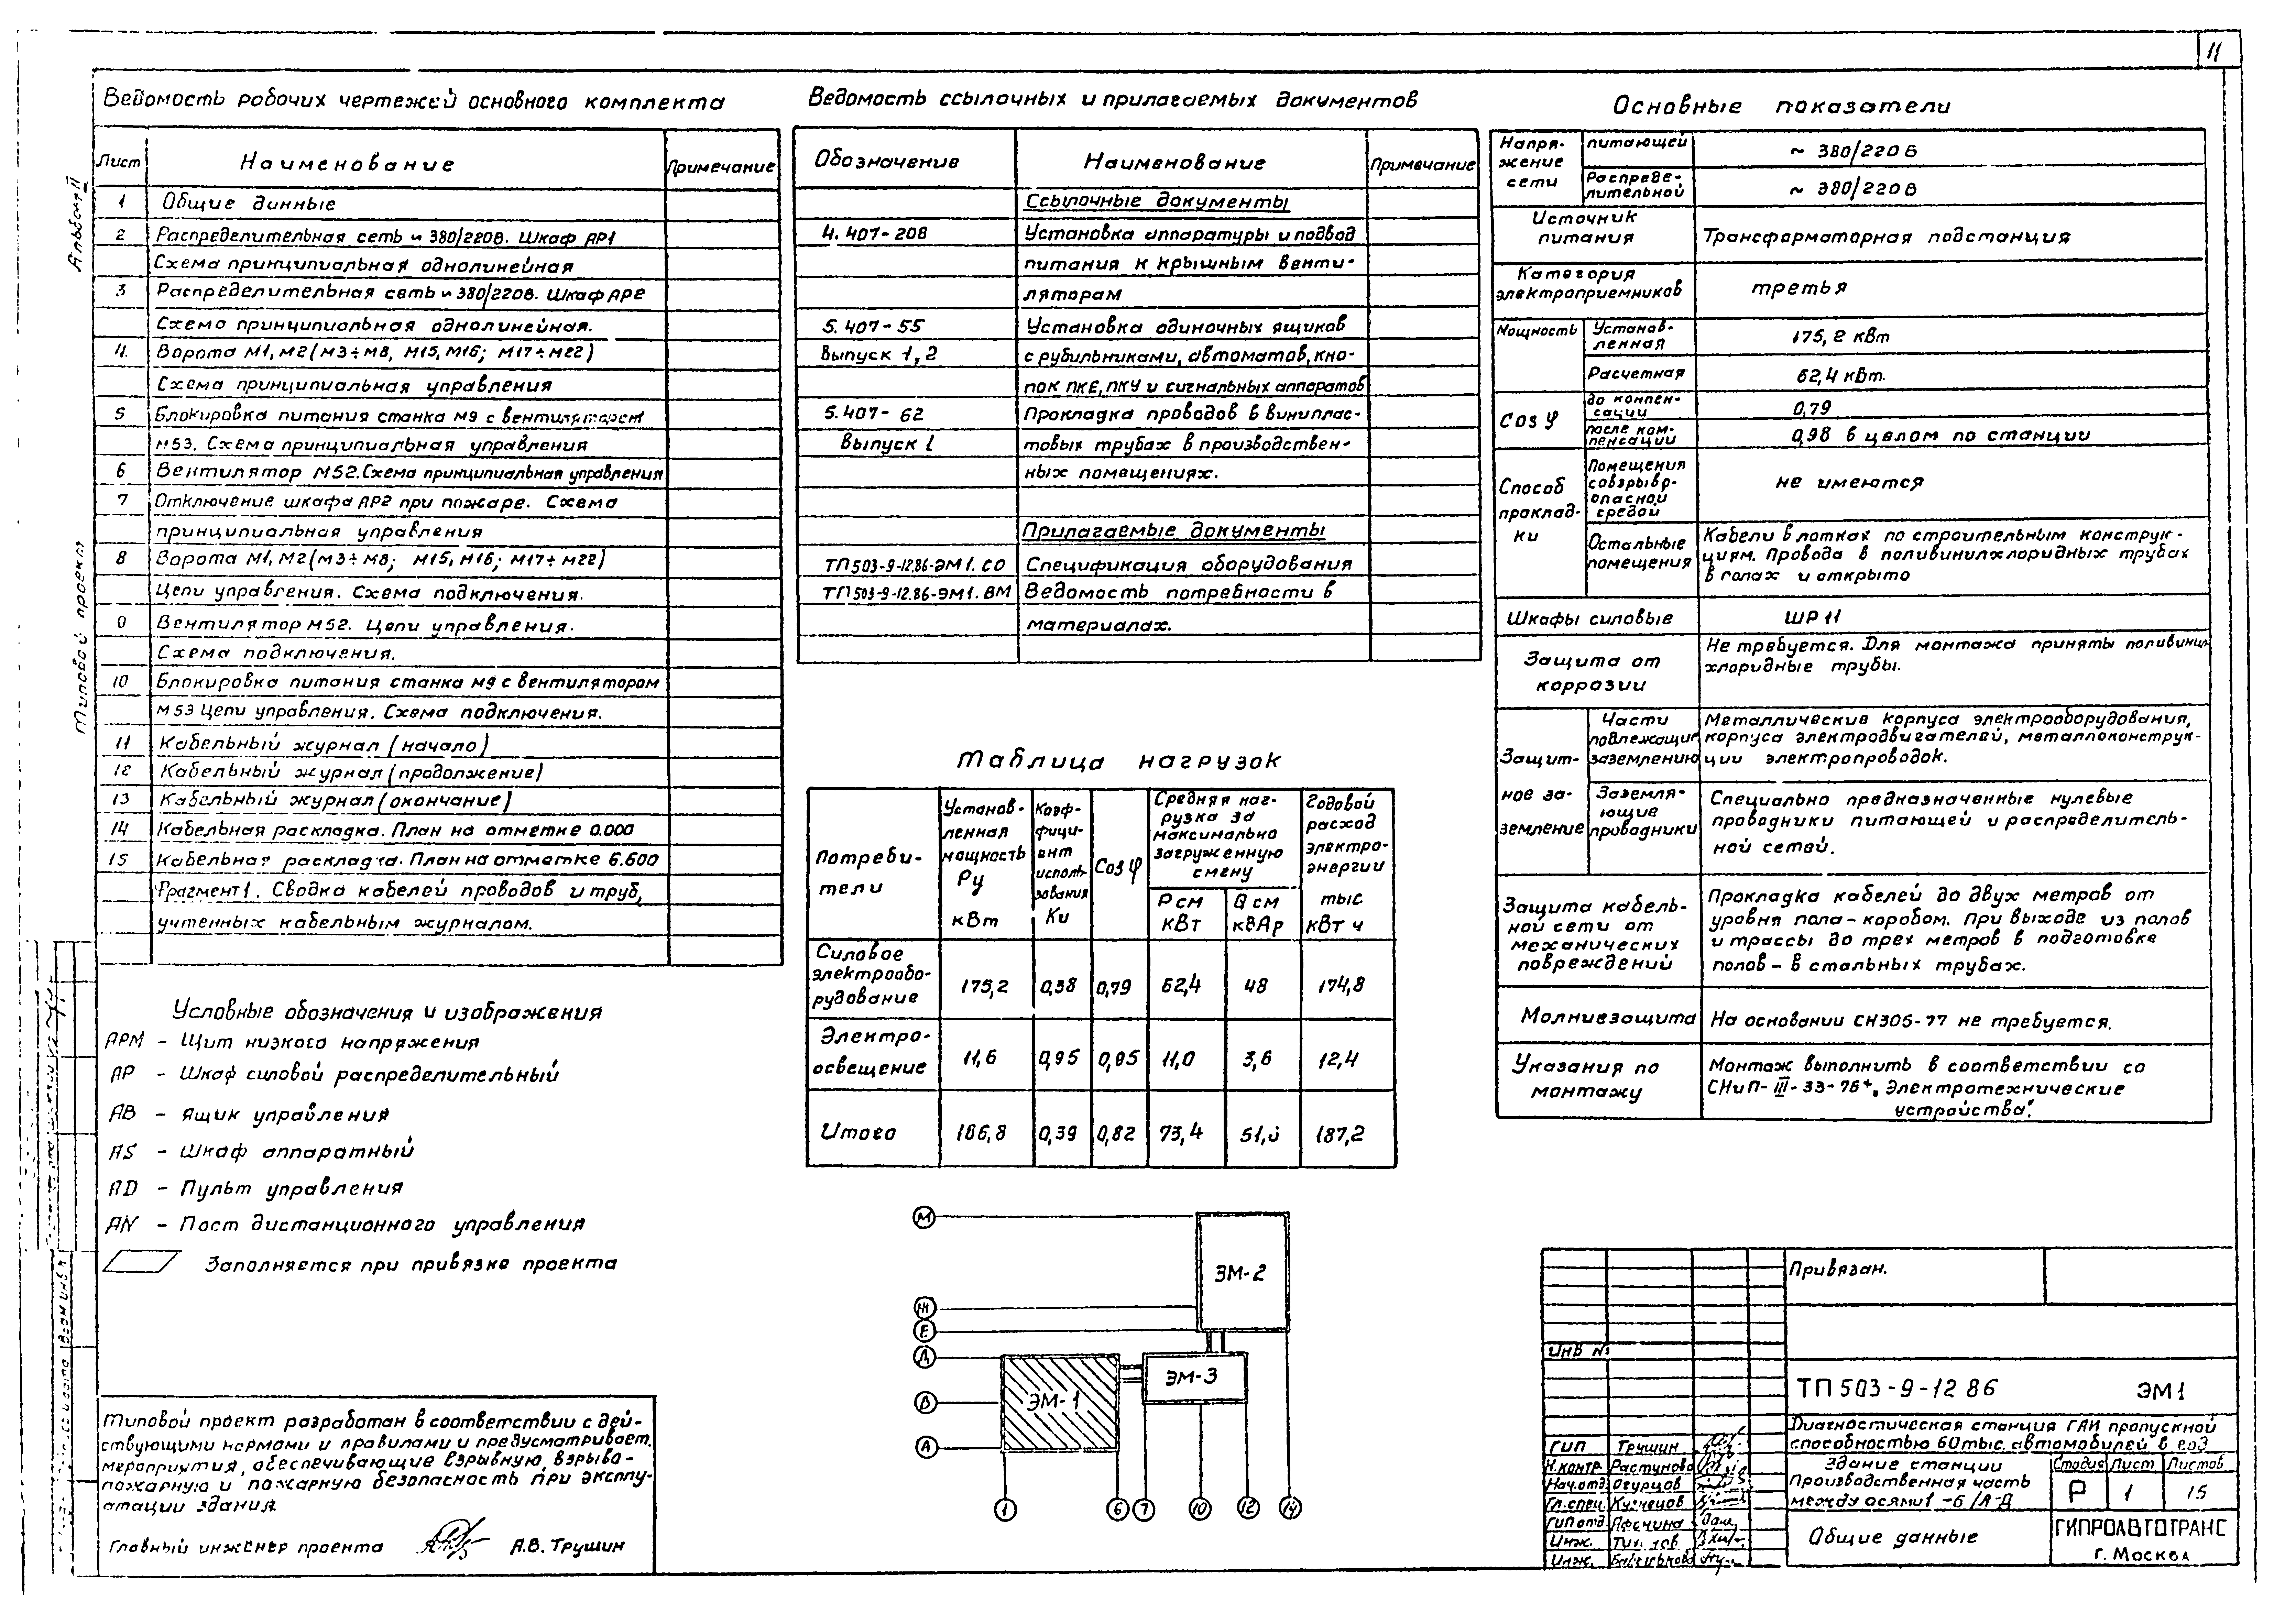 11
Альбом II
Типовой проект
Ведомость робочих чертежей основного комплекта
Лист Наименование Примечание
1 Общие данные
2 Распределительная сеть ~ 380/220В. Шкаф АР1
Схема принципиальная однолинейная
3 Распределительная сеть ~ 380/220В. Шкаф АР2
Схема принципиальная однолинейная.
4. Ворота М1, М2 (М3÷М8, М15, М16; М17÷М22)
Схема принципиальная управления
5 Блокировка питания станка М9 с вентилятором
М53. Схема принципиальная управления
6 Вентилятор М52. Схема принципиальная управления
7 Отключение шкафа АР2 при пожаре. Схема
принципиальная управления
8 Ворота М1, М2 (М3÷М8; М15, М16; М17÷М22)
Цепи управления. Схема подключения.
9 Вентилятор М52. Цепи управления.
Схема подключения.
10 Блокировка питания станка М9 с вентилятором
М53 Цепи управления. Схема подключения.
11 Кабельный журнал (начало)
12 Кабельный журнал (продолжение)
13 Кабельный журнал (окончание)
14 Кабельная раскладка. План на отметке 0.000
15 Кабельная раскладка. План на отметке 6.600
Фрагмент 1. Сводка кабелей проводов и труб,
учтенных кабельным журналом.
Условные обозначения и изображения
АРМ – Щит низкого напряжения
АР – Шкаф силовой распределительный
АВ – Ящик управления
AS – Шкаф аппаратный
AD – Пульт управления
AN – Пост дистанционного управления
Заполняется при привязке проекта
Типовой проект разработан в соответствии с дей-
ствующими нормами и правилами и предусматривает
мероприятия, обеспечивающие взрывную, взрыво-
пожарную и пожарную безопасность при эксплу-
атации здания
Главный инженер проекта А.В. Трушин
Ведомость ссылочных и прилагаемых документов
Обозначение Наименование Примечание
Ссылочные документы
4.407-208 Установка аппаратуры и подвод
питания к крышным венти-
ляторам
5.407-55 Установка одиночных ящиков
Выпуск 1, 2 с рубильниками, автоматов, кно-
пок ПКЕ, ПКУ и сигнальных аппаратов
5.407-62 Прокладка проводов в винiплас-
Выпуск 1 товых трубах в производствен-
ных помещениях.
Прилагаемые документы
ТП 503-9-12.86-ЭМ1. СО Спецификация оборудования
ТП 503-9-12.86-ЭМ1. ВМ Ведомость потребности в
материалах.
Таблица нагрузок
Потреби-
тели
Установ-
ленная
мощность
Ру
кВт
Коэф-
фици-
ент
исполь-
зования
Ки
Cos φ
Средняя наг-
рузка за
максимально
загруженную
смену
Рсм
кВт
Qсм
кВАр
Годовой
расход
электро-
энергии
тыс
кВт ч
Силовое
электрообо-
рудование 175,2 0,38 0,79 62,4 48 174,8
Электро-
освещение 11,6 0,95 0,95 11,0 3,6 12,4
Итого 186,8 0,39 0,82 73,4 51,6 187,2
М
Ж
Е
Д
В
А
ЭМ-2
ЭМ-3
ЭМ-1
1 6 7 10 12 14
Основные показатели
Напря-
жение
сети
питающей ~ 380/220 В
Распреде-
лительной ~ 380/220 В
Источник
питания Трансформаторная подстанция
Категория
электроприемников третья
Мощность
Установ-
ленная 175,2 кВт
Расчетная 62,4 кВт.
Cos φ
до компен-
сации 0,79
после ком-
пенсации 0,98 в целом по станции
Способ
проклад-
ки
Помещения
со взрыво-
опасной
средой не имеются
Остальные
помещения
Кабели в лотках по строительным конструк-
циям. Провода в поливинилхлоридных трубах
в полах и открыто
Шкафы силовые ШР 11
Защита от
коррозии
Не требуется. Для монтажа приняты поливинил
хлоридные трубы.
Защит-
ное за-
земление
Части
подлежащие
заземлению
Металлические корпуса электрооборудования,
корпуса электродвигателей, металлоконструк-
ции электропроводок.
Заземля-
ющие
проводники
Специально предназначенные нулевые
проводники питающей и распределитель-
ной сетей.
Защита кабель-
ной сети от
механических
повреждений
Прокладка кабелей до двух метров от
уровня пола – коробом. При выходе из полов
и трассы до трех метров в подготовке
полов – в стальных трубах.
Молниезащита На основании СН305-77 не требуется.
Указания по
монтажу
Монтаж выполнить в соответствии со
СНиП-III-33-76*. Электротехнические
устройства".
Привязан.
Инв №
ТП 503-9-12 86 ЭМ1
Диагностическая станция ГАИ пропускной
способностью 60 тыс. автомобилей в год
Здание станции
Производственная часть
между осями 1-6/А-Д
Стадия Лист Листов
Р 1 15
Общие данные
ГИПРОАВТОТРАНС
г. Москва
ГИП Трушин
Н.контр. Растунова
Нач.отд. Огурцов
Гл.спец. Кузнецов
ГИП отд.
Инж.
Инж.